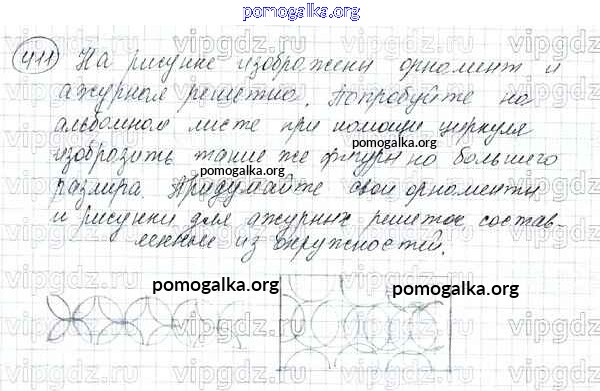 pomogalka.org
411 На рисунке изображены орнамент и
ажурная решетка. Попробуйте на
альбомном листе при помощи циркуля
изобразить такие же фигуры но большего
размера. Придумайте свои орнаменты
и рисунки для ажурных решеток состав-
ленные из окружностей.
pomogalka.org
pomogalka.org
pomogalka.org
vipgdz.ru vipgdz.ru vipgdz.ru vipgdz.ru